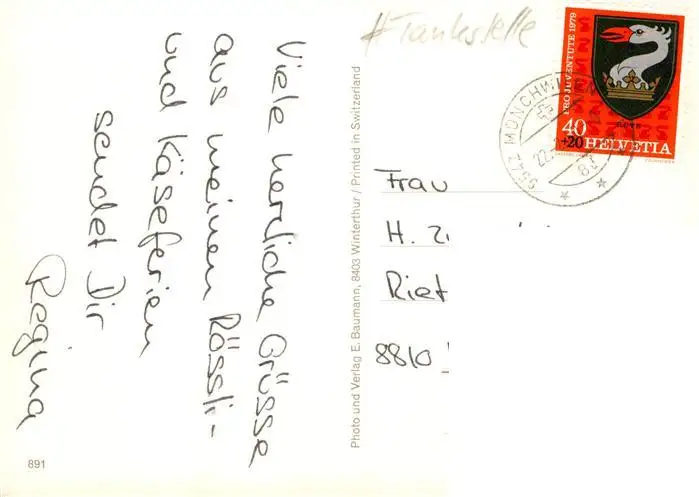 Viele herzliche Grüsse
aus meinen Rössli-
und Käseferien
sendet Dir
Regina
891
Photo und Verlag E. Baumann, 8403 Winterthur / Printed in Switzerland
# Tankstelle
PRO JUVENTUTE 1979
40
+20 HELVETIA
9542 MÜNCHWILEN
Frau
H.
Riet
8810